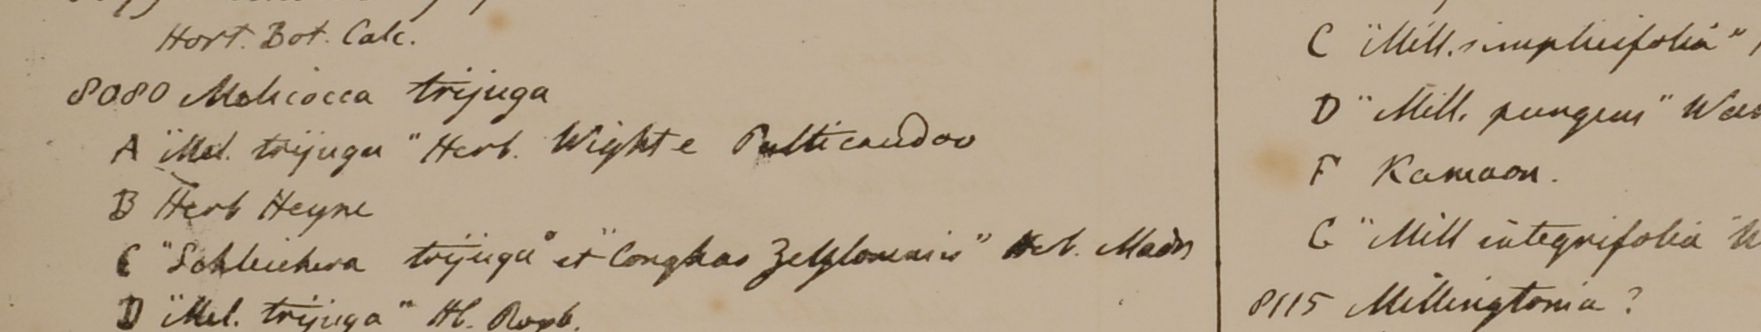 Hort. Bot. Calc.
8080 Melicocca trijuga
A "Mel. trijuga" Herb. Wight e Palticaudoo
B Herb Heyne
C "Schleichera trijuga" et "Conghas Zeylonensis" Herb. Madrs
D "Mel. trijuga" Hb. Roxb.
C "Mill. simplicifolia"
D "Mill. pungens"
F Kamaon.
G "Mill integrifolia"
8115 Millingtonia?